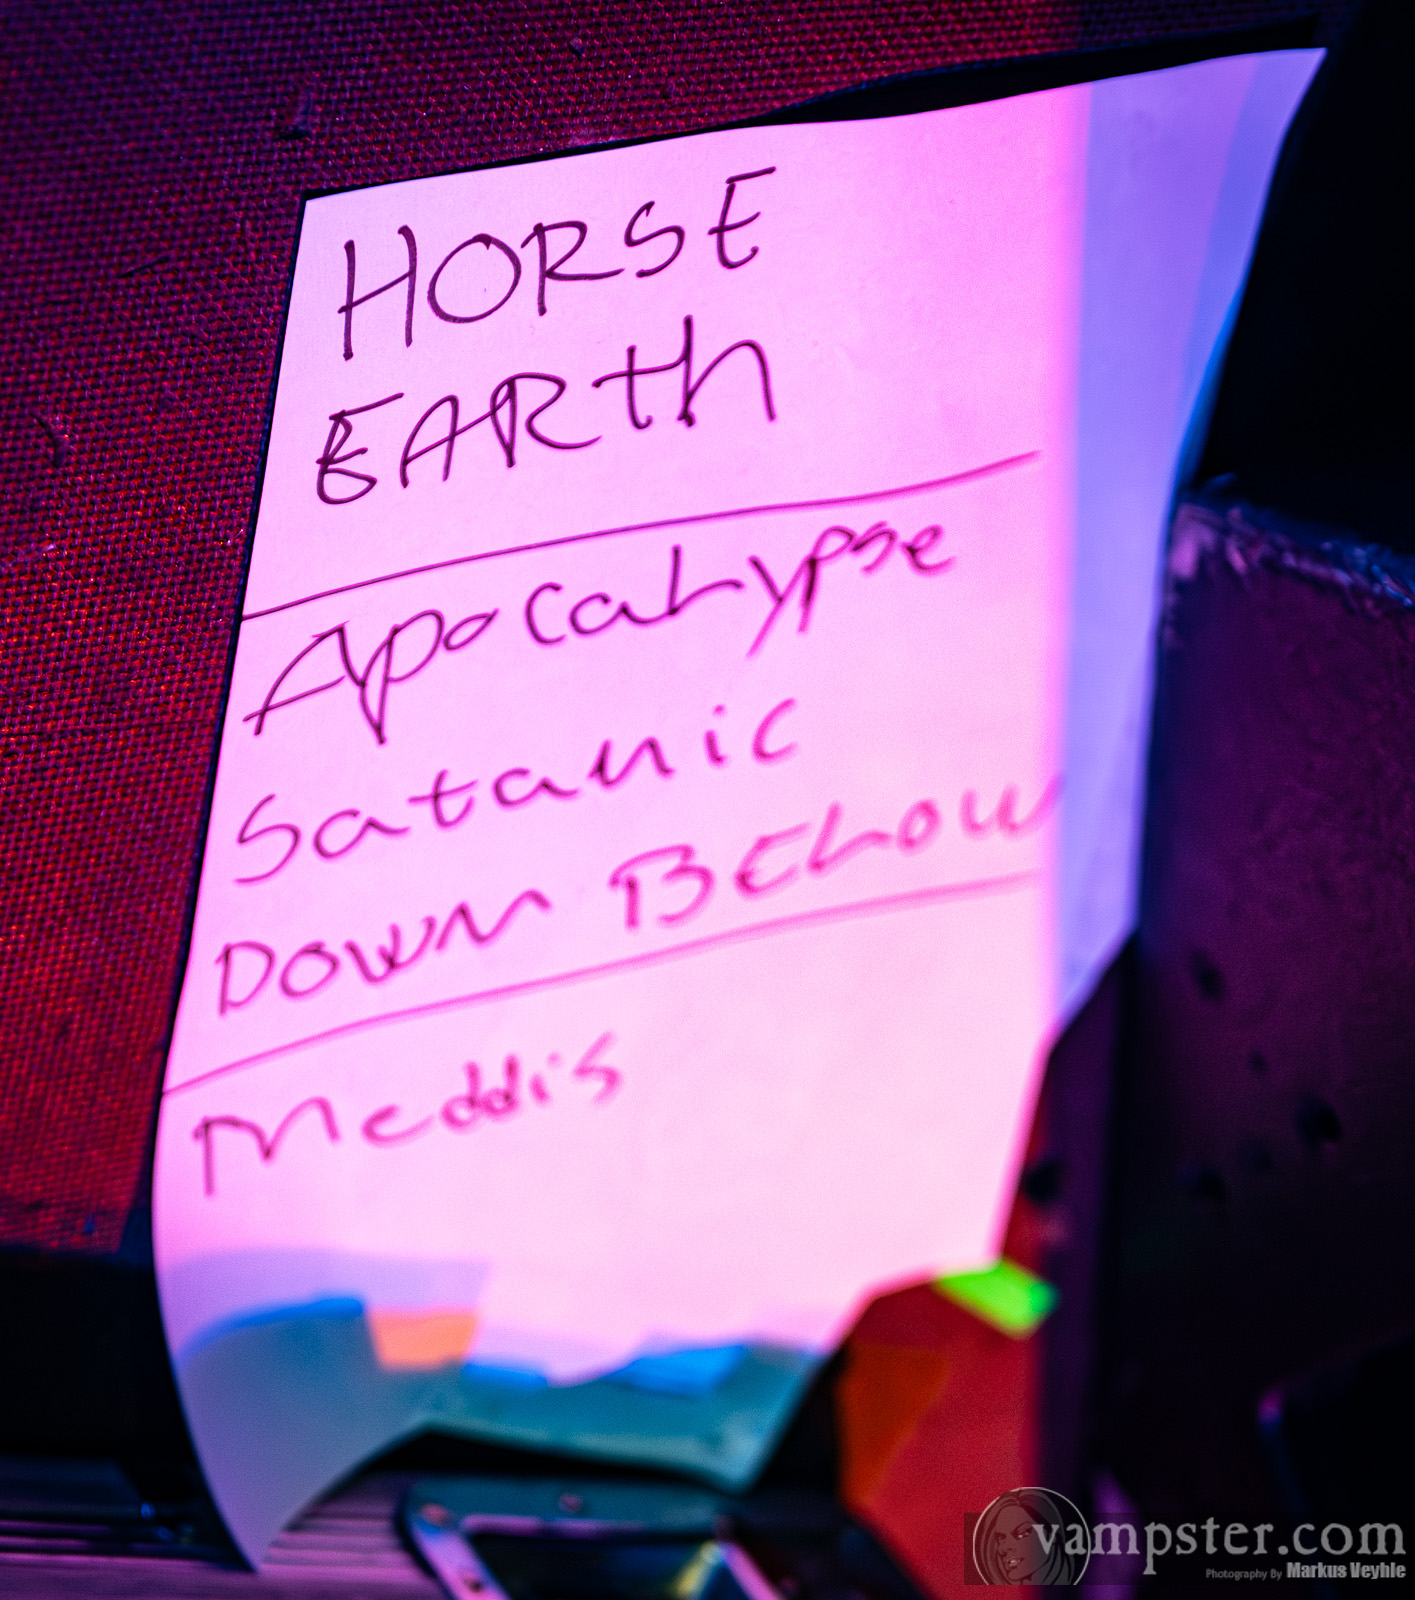 HORSE
EARth
Apocalypse
Satanic
DOWN BELOW
Meddis
vampster.com
Photography By Markus Veyhle